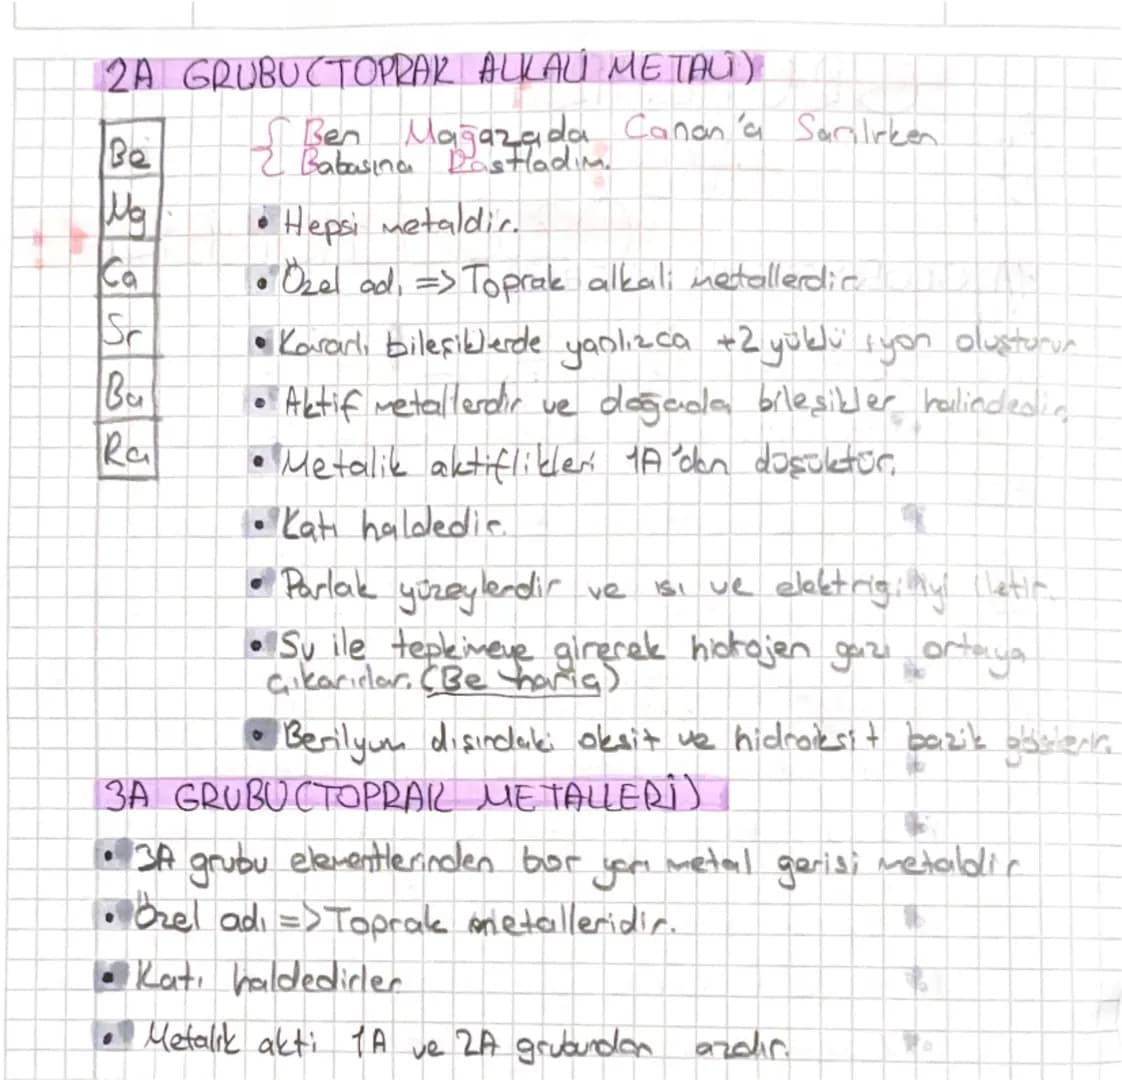 2A GRUBU (TOPRAK ALKALİ METALİ)
Be
Mg
Ca
Sr
Ba
Ra
Ben Mağazada Canan'a Sarılırken
Babasına Rastladım.
• Hepsi metaldir.
• Özel adı => Toprak alkali metallerdir
• Kararlı bileşiklerde yanlızca +2 yüklü iyon oluşturur
• Aktif metallerdir ve doğada bileşikler halindedir
• Metalik aktiflikleri 1A'dan düşüktür.
• Katı haldedir.
• Parlak yüzeylerdir ve ısı ve elektriği iyi iletir.
• Su ile tepkimeye girerek hidrojen gazı ortaya
çıkarırlar. (Be hariç)
• Berilyum dışındaki oksit ve hidroksit bazik
3A GRUBU (TOPRAK METALLERİ)
• 3A grubu elementlerinden bor yarı metal gerisi metaldir
• Özel adı => Toprak metalleridir.
• Katı haldedirler
• Metalik akti 1A ve 2A grubundan azdır.